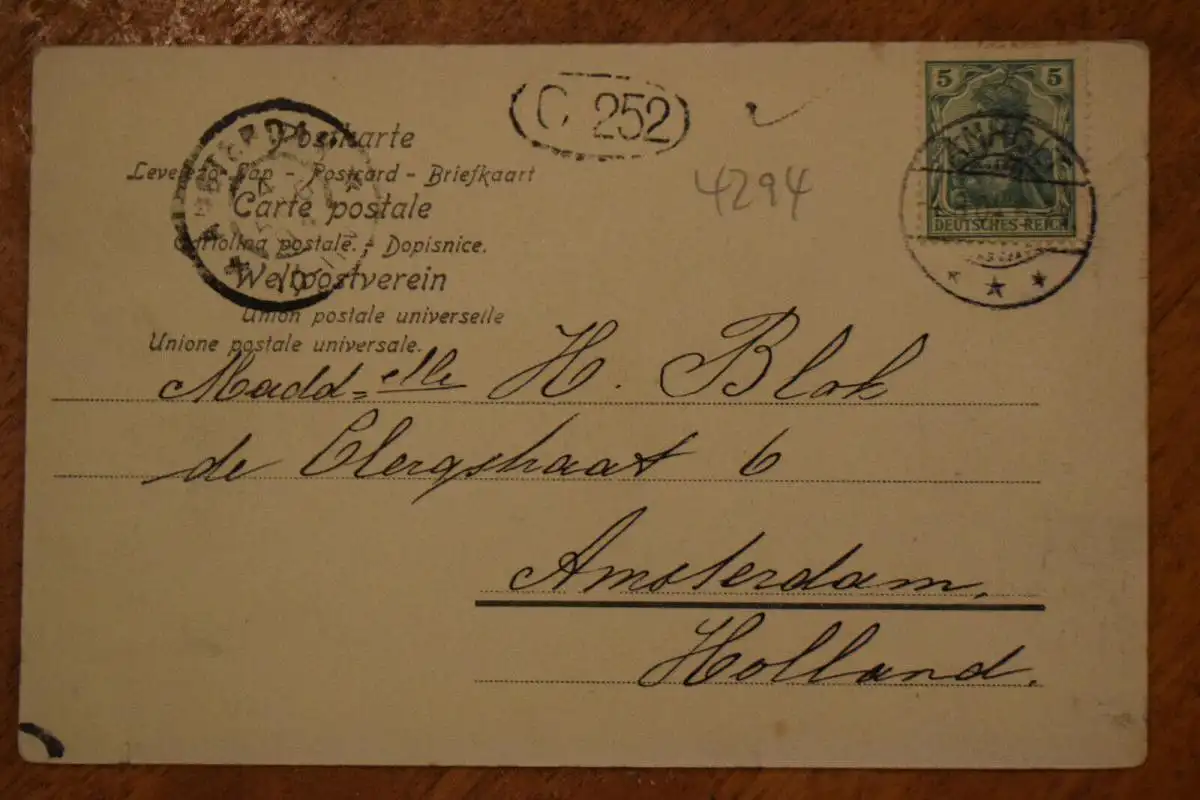 C 252
5 5
DEUTSCHES-REICH
4294
AMSTERDAM
Postkarte
Levelező-Lap - Postcard - Briefkaart
Carte postale
Cartolina postale. - Dopisnice.
Weltpostverein
Union postale universelle
Unione postale universale.
Madd-elle H. Blok
de Clerqshaat 6
Amsterdam,
Holland.